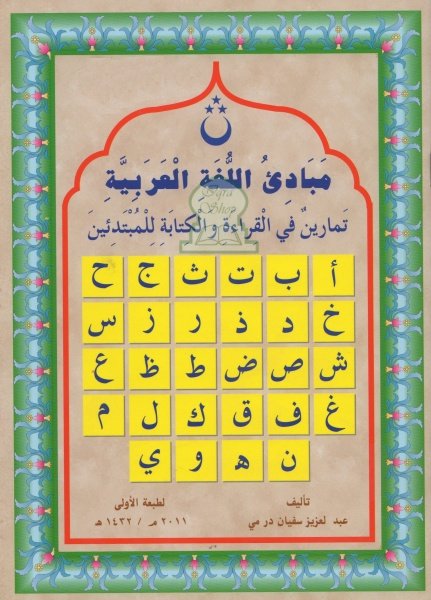 مَبَادِئُ اللُّغَةِ الْعَرَبِيَّةِ
Iqra
Shop
تَمارِينٌ فِي الْقِراءَةِ وَالْكِتابَةِ لِلْمُبْتَدِئِينَ
أ ب ت ث ج ح
خ د ذ ر ز س
ش ص ض ط ظ ع
غ ف ق ك ل م
ن ه و ي
تأليف
عبد لعزيز سفيان درمي
لطبعة الأولى
٢٠١١ م / ١٤٣٢ ه